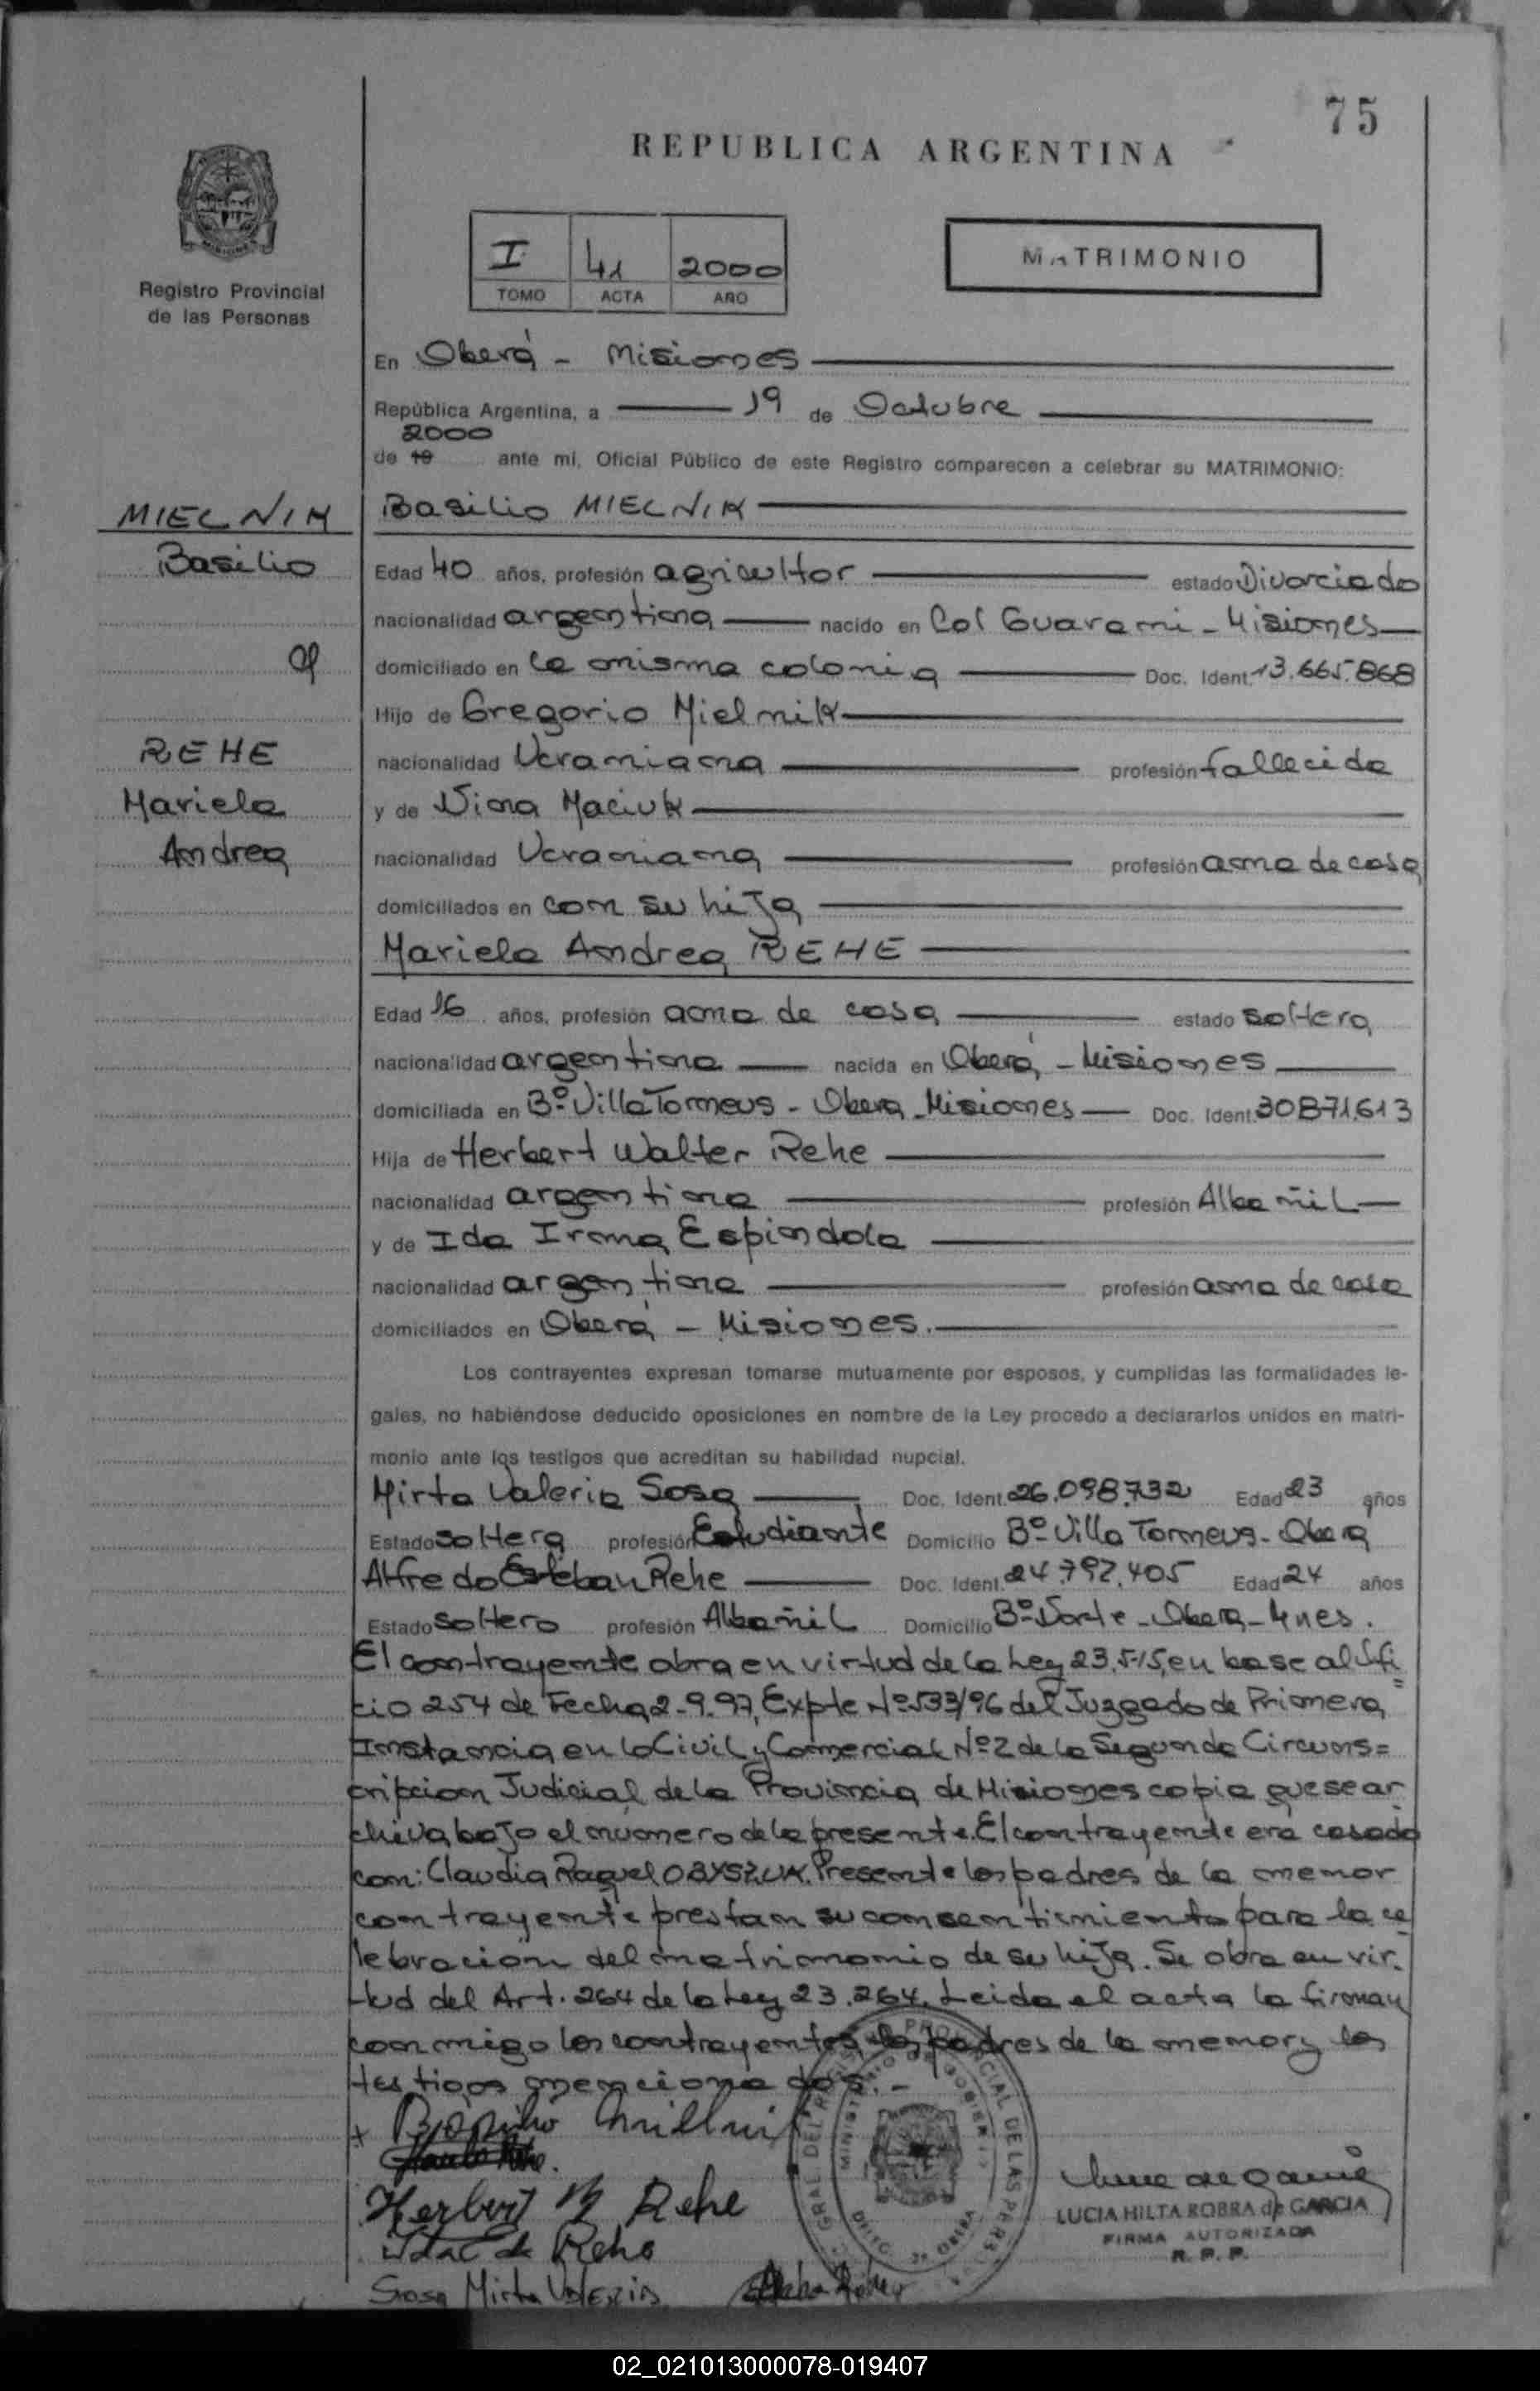 75
REPUBLICA ARGENTINA
I 41 2000
TOMO ACTA AÑO
MATRIMONIO
Registro Provincial
de las Personas
En Oberá - Misiones
República Argentina, a 19 de Octubre
2000
de 19 ante mí, Oficial Público de este Registro comparecen a celebrar su MATRIMONIO:
MIELNIK
Basilio
REHE
Mariela
Andrea
Basilio MIELNIK
Edad 40 años, profesión agricultor estado Divorciado
nacionalidad argentina nacido en Col Guarani - Misiones
domiciliado en la misma colonia Doc. Ident. 13.665.868
Hijo de Gregorio Mielnik
nacionalidad Ucraniana profesión fallecido
y de Nina Maciuk
nacionalidad Ucraniana profesión ama de casa
domiciliados en con su hijo
Mariela Andrea REHE
Edad 16 años, profesión ama de casa estado soltera
nacionalidad argentina nacida en Oberá - Misiones
domiciliada en Bº Villa Torneus - Oberá - Misiones Doc. Ident. 30871.613
Hija de Herbert Walter Rehe
nacionalidad argentina profesión Albañil
y de Ida Irma Espindola
nacionalidad argentina profesión ama de casa
domiciliados en Oberá - Misiones.
Los contrayentes expresan tomarse mutuamente por esposos, y cumplidas las formalidades le-
gales, no habiéndose deducido oposiciones en nombre de la Ley procedo a declararlos unidos en matri-
monio ante los testigos que acreditan su habilidad nupcial.
Mirta Valeria Sosa Doc. Ident. 26.098.732 Edad 23 años
Estado soltera profesión Estudiante Domicilio Bº Villa Torneus - Oberá
Alfredo Esteban Rehe Doc. Ident. 24.792.405 Edad 24 años
Estado soltero profesión Albañil Domicilio Bº Norte - Oberá - Mnes.
El contrayente obra en virtud de la Ley 23.515, en base al Ofi=
cio 254 de Fecha 2-9-97, Expte Nº 533/96 del Juzgado de Primera
Instancia en lo Civil y Comercial Nº 2 de la Segunda Circuns=
cripcion Judicial de la Provincia de Misiones copia que se ar
chiva bajo el numero de la presente. El contrayente era casado
con: Claudia Raquel OBYSZUK. Presente los padres de la menor
contrayente prestan su consentimiento para la ce
lebracion del matrimonio de su hija. Se obra en vir.
tud del Art. 264 de la Ley 23.264. Leida el acta la firman
conmigo los contrayentes, los padres de la menor y los
testigos mencionados.-
Herbert W Rehe
Ida E de Rehe
Sosa Mirta Valeria
LUCIA HILTA ROBRA de GARCIA
FIRMA AUTORIZADA
R. P. P.
02_021013000078-019407